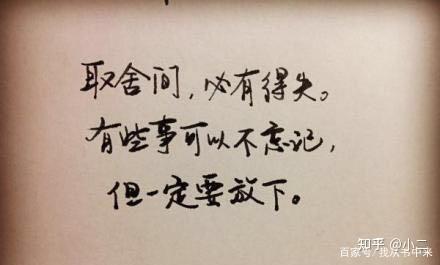 取舍间，必有得失。
有些事可以不忘记，
但一定要放下。
知乎 @小二
百家号/我从书中来